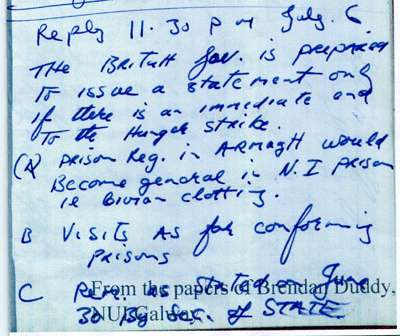 Reply 11.30 pm July. 6
The British Gov. is preparing
To issue a statement only
if there is an immediate end
To the Hunger strike.
(A) prison Reg. in ARMAGH would
Become general in N.I prison
ie Civvian clotting.
B Visits as for conforming
prisons
C Rem. as stated on June
30 By Sec. of STATE.
From the papers of Brendan Duddy,
NUI Galway